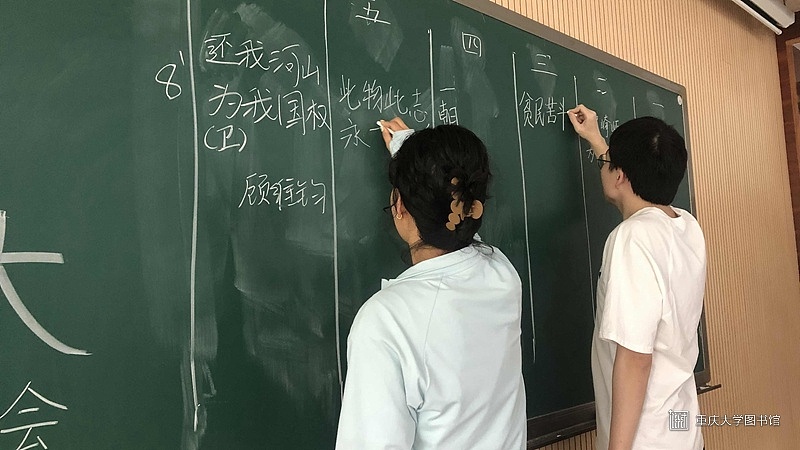 8'
还我河山
为我国权
(卫)
顾维钧
五
此物此志
永
四
一朝
三
贫民苦斗
二
一
大
会
重庆大学图书馆